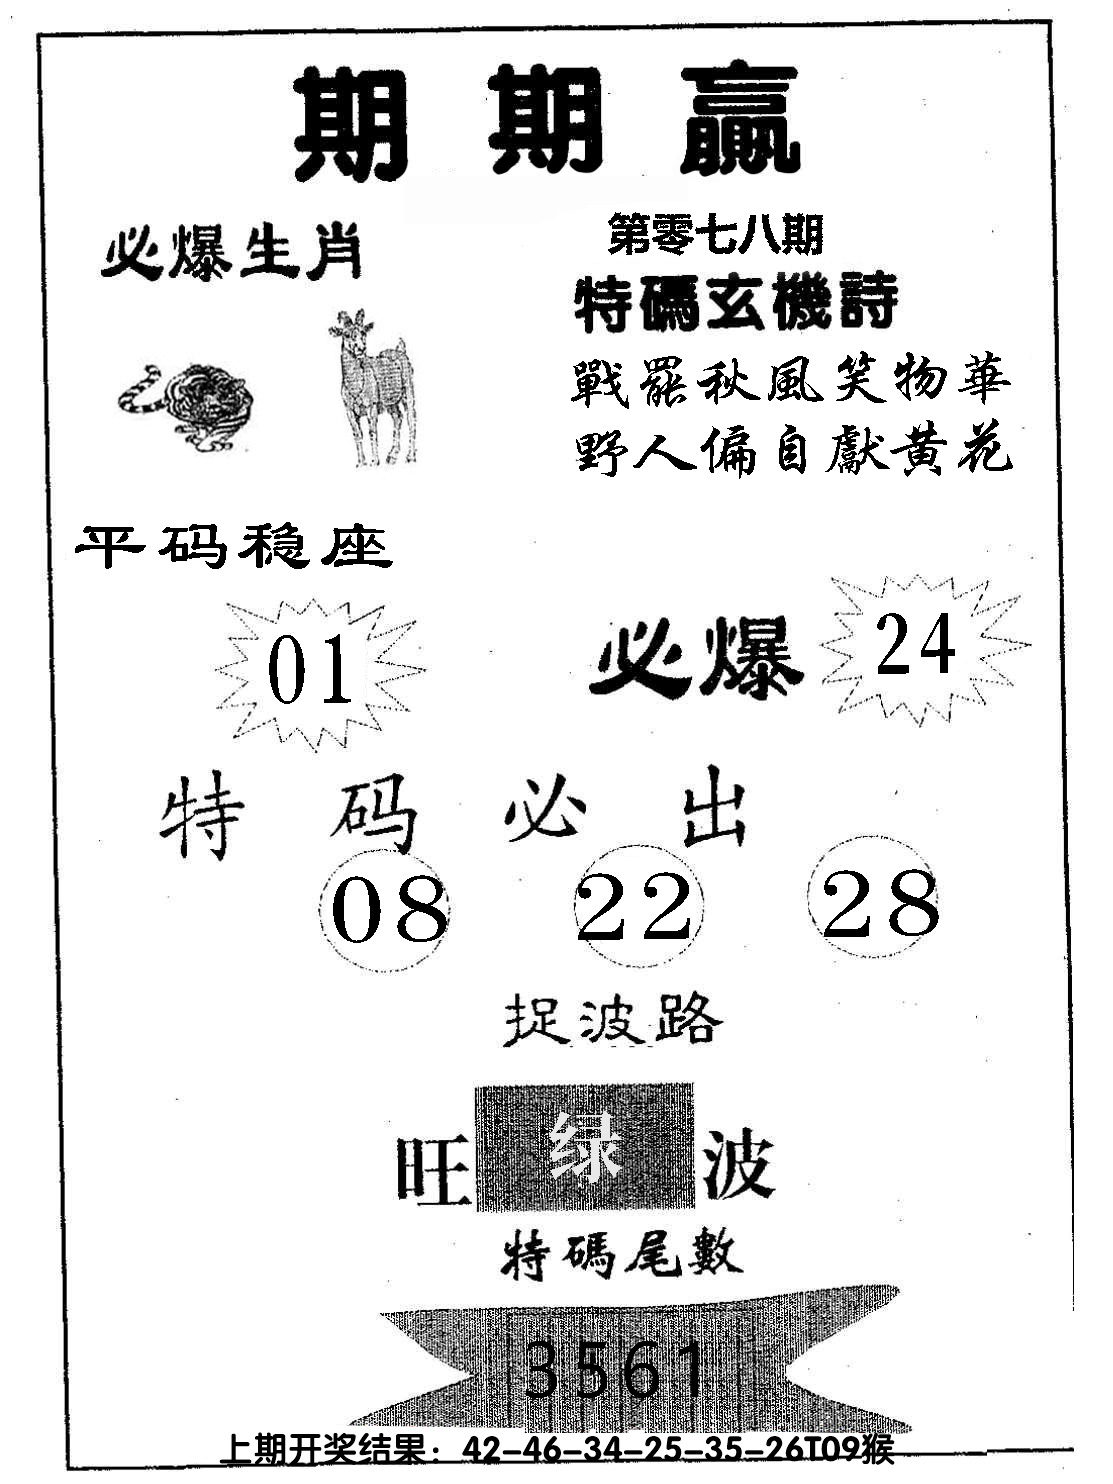 期期赢
必爆生肖
第零七八期
特碼玄機詩
戰罷秋風笑物華
野人偏自獻黄花
平码稳座
01
必爆 24
特码必出
08 22 28
捉波路
旺 绿 波
特碼尾數
3561
上期开奖结果：42-46-34-25-35-26T09猴